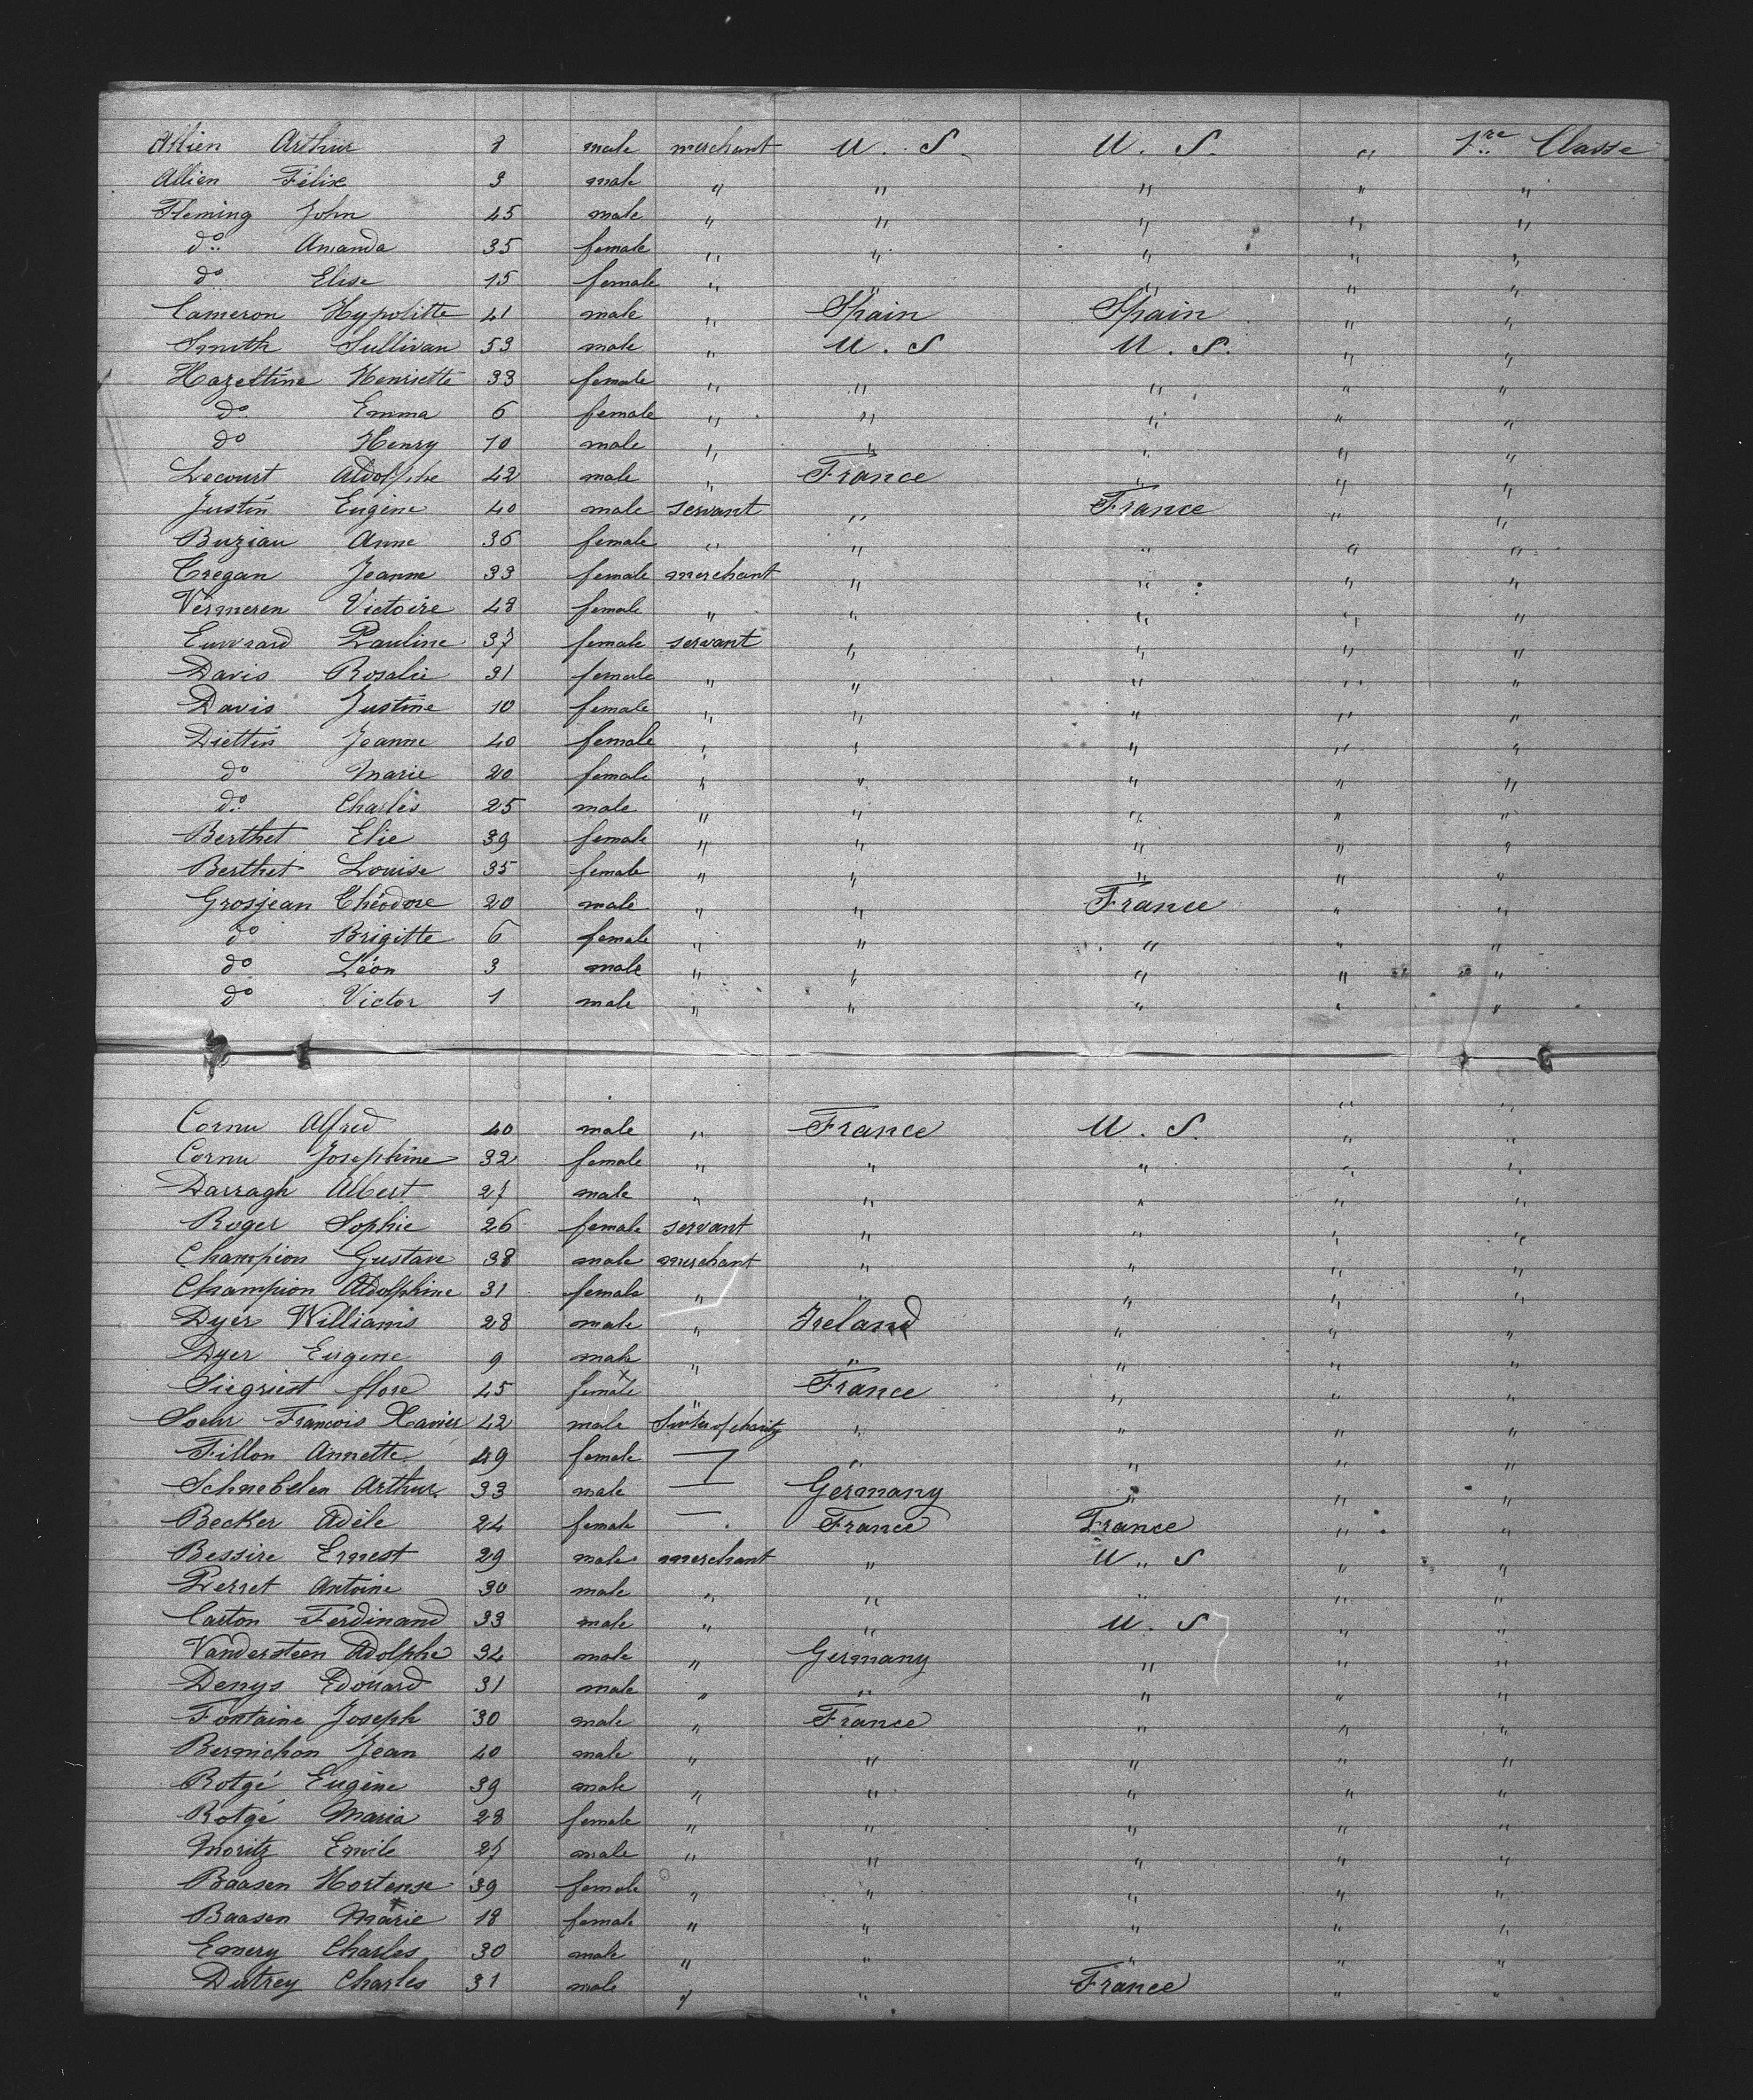 Allien Arthur 8 male merchant U. S. U. S. " 1re Classe
Allien Félix 3 male " " " " "
Fleming John 45 male " " " " "
do Amanda 35 female " " " " "
do Elise 15 female " " " " "
Cameron Hypolitte 41 male " Spain Spain " "
Smith Sullivan 53 male " U. S U. S. " "
Hazeltine Henriette 33 female " " " " "
do Emma 6 female " " " " "
do Henry 10 male " " " " "
Lecourt Aldolphe 42 male " France " " "
Justin Eugène 40 male servant " France " "
Buziau Anne 36 female " " " " "
Tregan Jeanne 33 female merchant " " " "
Vermeren Victoire 48 female " " " " "
Euvrard Pauline 37 female servant " " " "
Davis Rosalie 31 female " " " " "
Davis Justine 10 female " " " " "
Diettin Jeanne 40 female " " " " "
do Marie 20 female " " " " "
do Charles 25 male " " " " "
Berthet Elie 39 female " " " " "
Berthet Louise 35 female " " " " "
Grosjean Théodore 20 male " " France " "
do Brigitte 6 female " " " " "
do Léon 3 male " " " " "
do Victor 1 male " " " " "
" "
Cornu Alfred 40 male " France U. S. " "
Cornu Josephine 32 female " " " " "
Darragh Albert 27 male " " " " "
Roger Sophie 26 female servant " " " "
Champion Gustave 38 male merchant " " " "
Champion Aldolphine 31 female " " " " "
Dyer Williams 28 male " Ireland " " "
Dyer Eugene 9 male " " " " "
Siegriest flore 45 female " France " " "
Soehr Francois Xavier 42 male Sister of charity " " " "
Fillon Annette 49 female " " " "
Schnebelen Arthur 33 male Germany " " "
Becker Adèle 24 female — France France " "
Bessire Ernest 29 male merchant " U. S " "
Perret Antoine 30 male " " " " "
Carton Ferdinand 33 male " " U. S " "
Vandersteen Adolphe 34 male " Germany " " "
Denys Edouard 31 male " " " " "
Fontaine Joseph 30 male " France " " "
Bernichon Jean 40 male " " " " "
Rotgé Eugène 39 male " " " " "
Rotgé Maria 28 female " " " " "
Moritz Emile 27 male " " " " "
Baasen Hortense 39 female " " " " "
Baasen Marie 18 female " " " " "
Emery Charles 30 male " " " " "
Dutrey Charles 31 male " " France " "